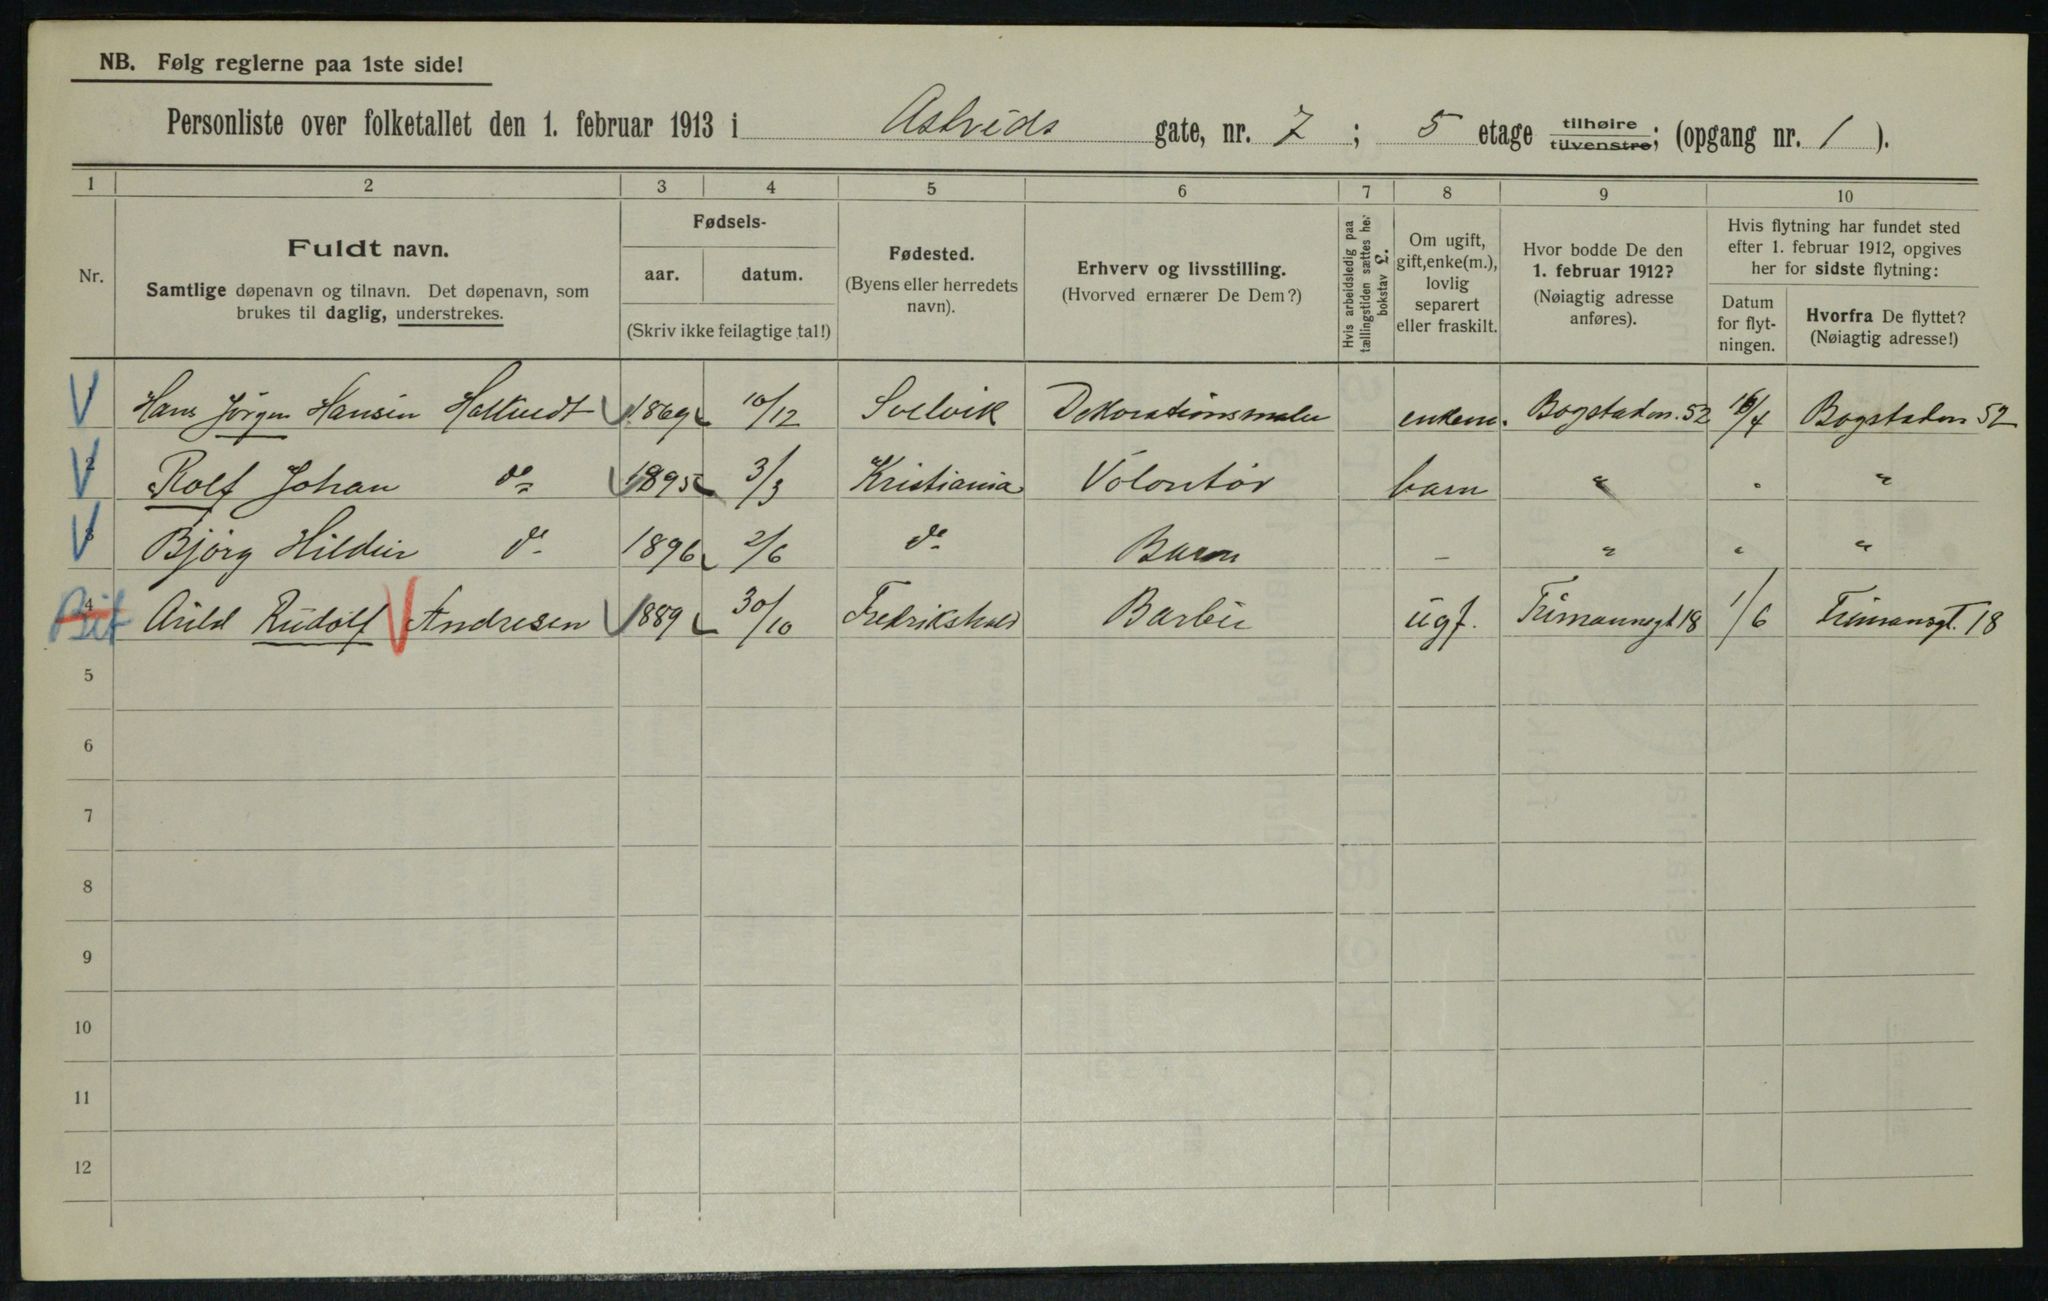 NB. Følg reglerne paa 1ste side!
Personliste over folketallet den 1. februar 1913 i Astrids gate, nr. 7; 5 etage tilhøire tilvenstre; (opgang nr. 1).
1 2 3 4 5 6 7 8 9 10
Nr.
Fuldt navn.
Samtlige døpenavn og tilnavn. Det døpenavn, som
brukes til daglig, understrekes.
Fødsels-
aar. datum.
(Skriv ikke feilagtige tal!)
Fødested.
(Byens eller herredets
navn).
Erhverv og livsstilling.
(Hvorved ernærer De Dem?)
Hvis arbeidsledig paa
tællingstiden sættes her
bokstav £.
Om ugift,
gift, enke(m.),
lovlig
separert
eller fraskilt.
Hvor bodde De den
1. februar 1912?
(Nøiagtig adresse
anføres).
Hvis flytning har fundet sted
efter 1. februar 1912, opgives
her for sidste flytning:
Datum
for flyt-
ningen.
Hvorfra De flyttet?
(Nøiagtig adresse!)
1 Hans Jörgen Hansen 1869 10/12 Svelvik Dekorationsmaler enkem. Bogstadvn. 52 16/4 Bogstadvn 52
2 Rolf Johan do 1895 3/3 Kristiania Volontör barn " " "
3 Björg Hildur do 1896 2/6 do Barn – " " "
4 Bif Arild Rudolf Andresen 1889 30/10 Fredrikshald Barber ugf. 18 1/6 18
5
6
7
8
9
10
11
12